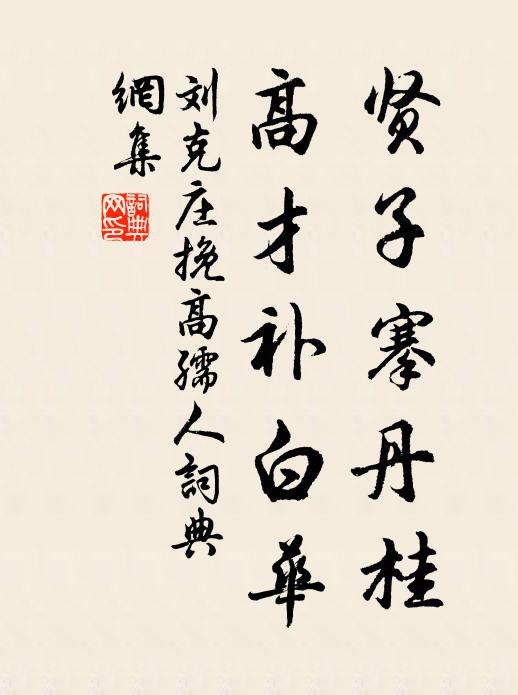 贤子搴丹桂
高才补白华
刘克庄挽高孺人詞典
網集
詞典
网印